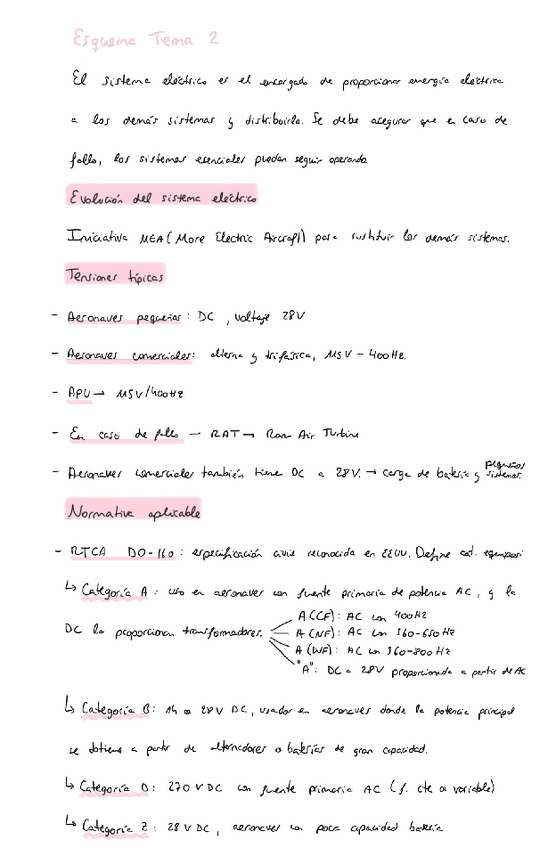 Esquema Tema 2
El sistema eléctrico es el encargado de proporcionar energía eléctrica
a los demás sistemas y distribuirla. Se debe asegurar que en caso de
fallo, los sistemas esenciales puedan seguir operando
Evolución del sistema eléctrico
Iniciativa MEA (More Electric Aircraft) para sustituir los demás sistemas.
Tensiones típicas
- Aeronaves pequeñas: DC, voltaje 28V
- Aeronaves comerciales: alterna y trifásica, 115V - 400Hz.
- APU → 115V/400Hz
- En caso de fallo - RAT → Ram Air Turbine
- Aeronaves comerciales también tiene DC a 28V. → carga de batería y pequeños sistemas.
Normativa aplicable
- RTCA DO-160: especificación civil reconocida en EEUU. Define cat. equipos:
↳ Categoría A: uso en aeronaves con fuente primaria de potencia AC, y la
DC la proporcionan transformadores.
A (CF): AC con 400Hz
A (NF): AC con 360-650Hz
A (WF): AC con 360-800Hz
"A": DC a 28V proporcionada a partir de AC
↳ Categoría B: 14 o 28V DC, usados en aeronaves donde la potencia principal
se obtiene a partir de alternadores o baterías de gran capacidad.
↳ Categoría D: 270 V DC con fuente primaria AC (f. cte o variable)
↳ Categoría Z: 28V DC, aeronaves con poca capacidad batería